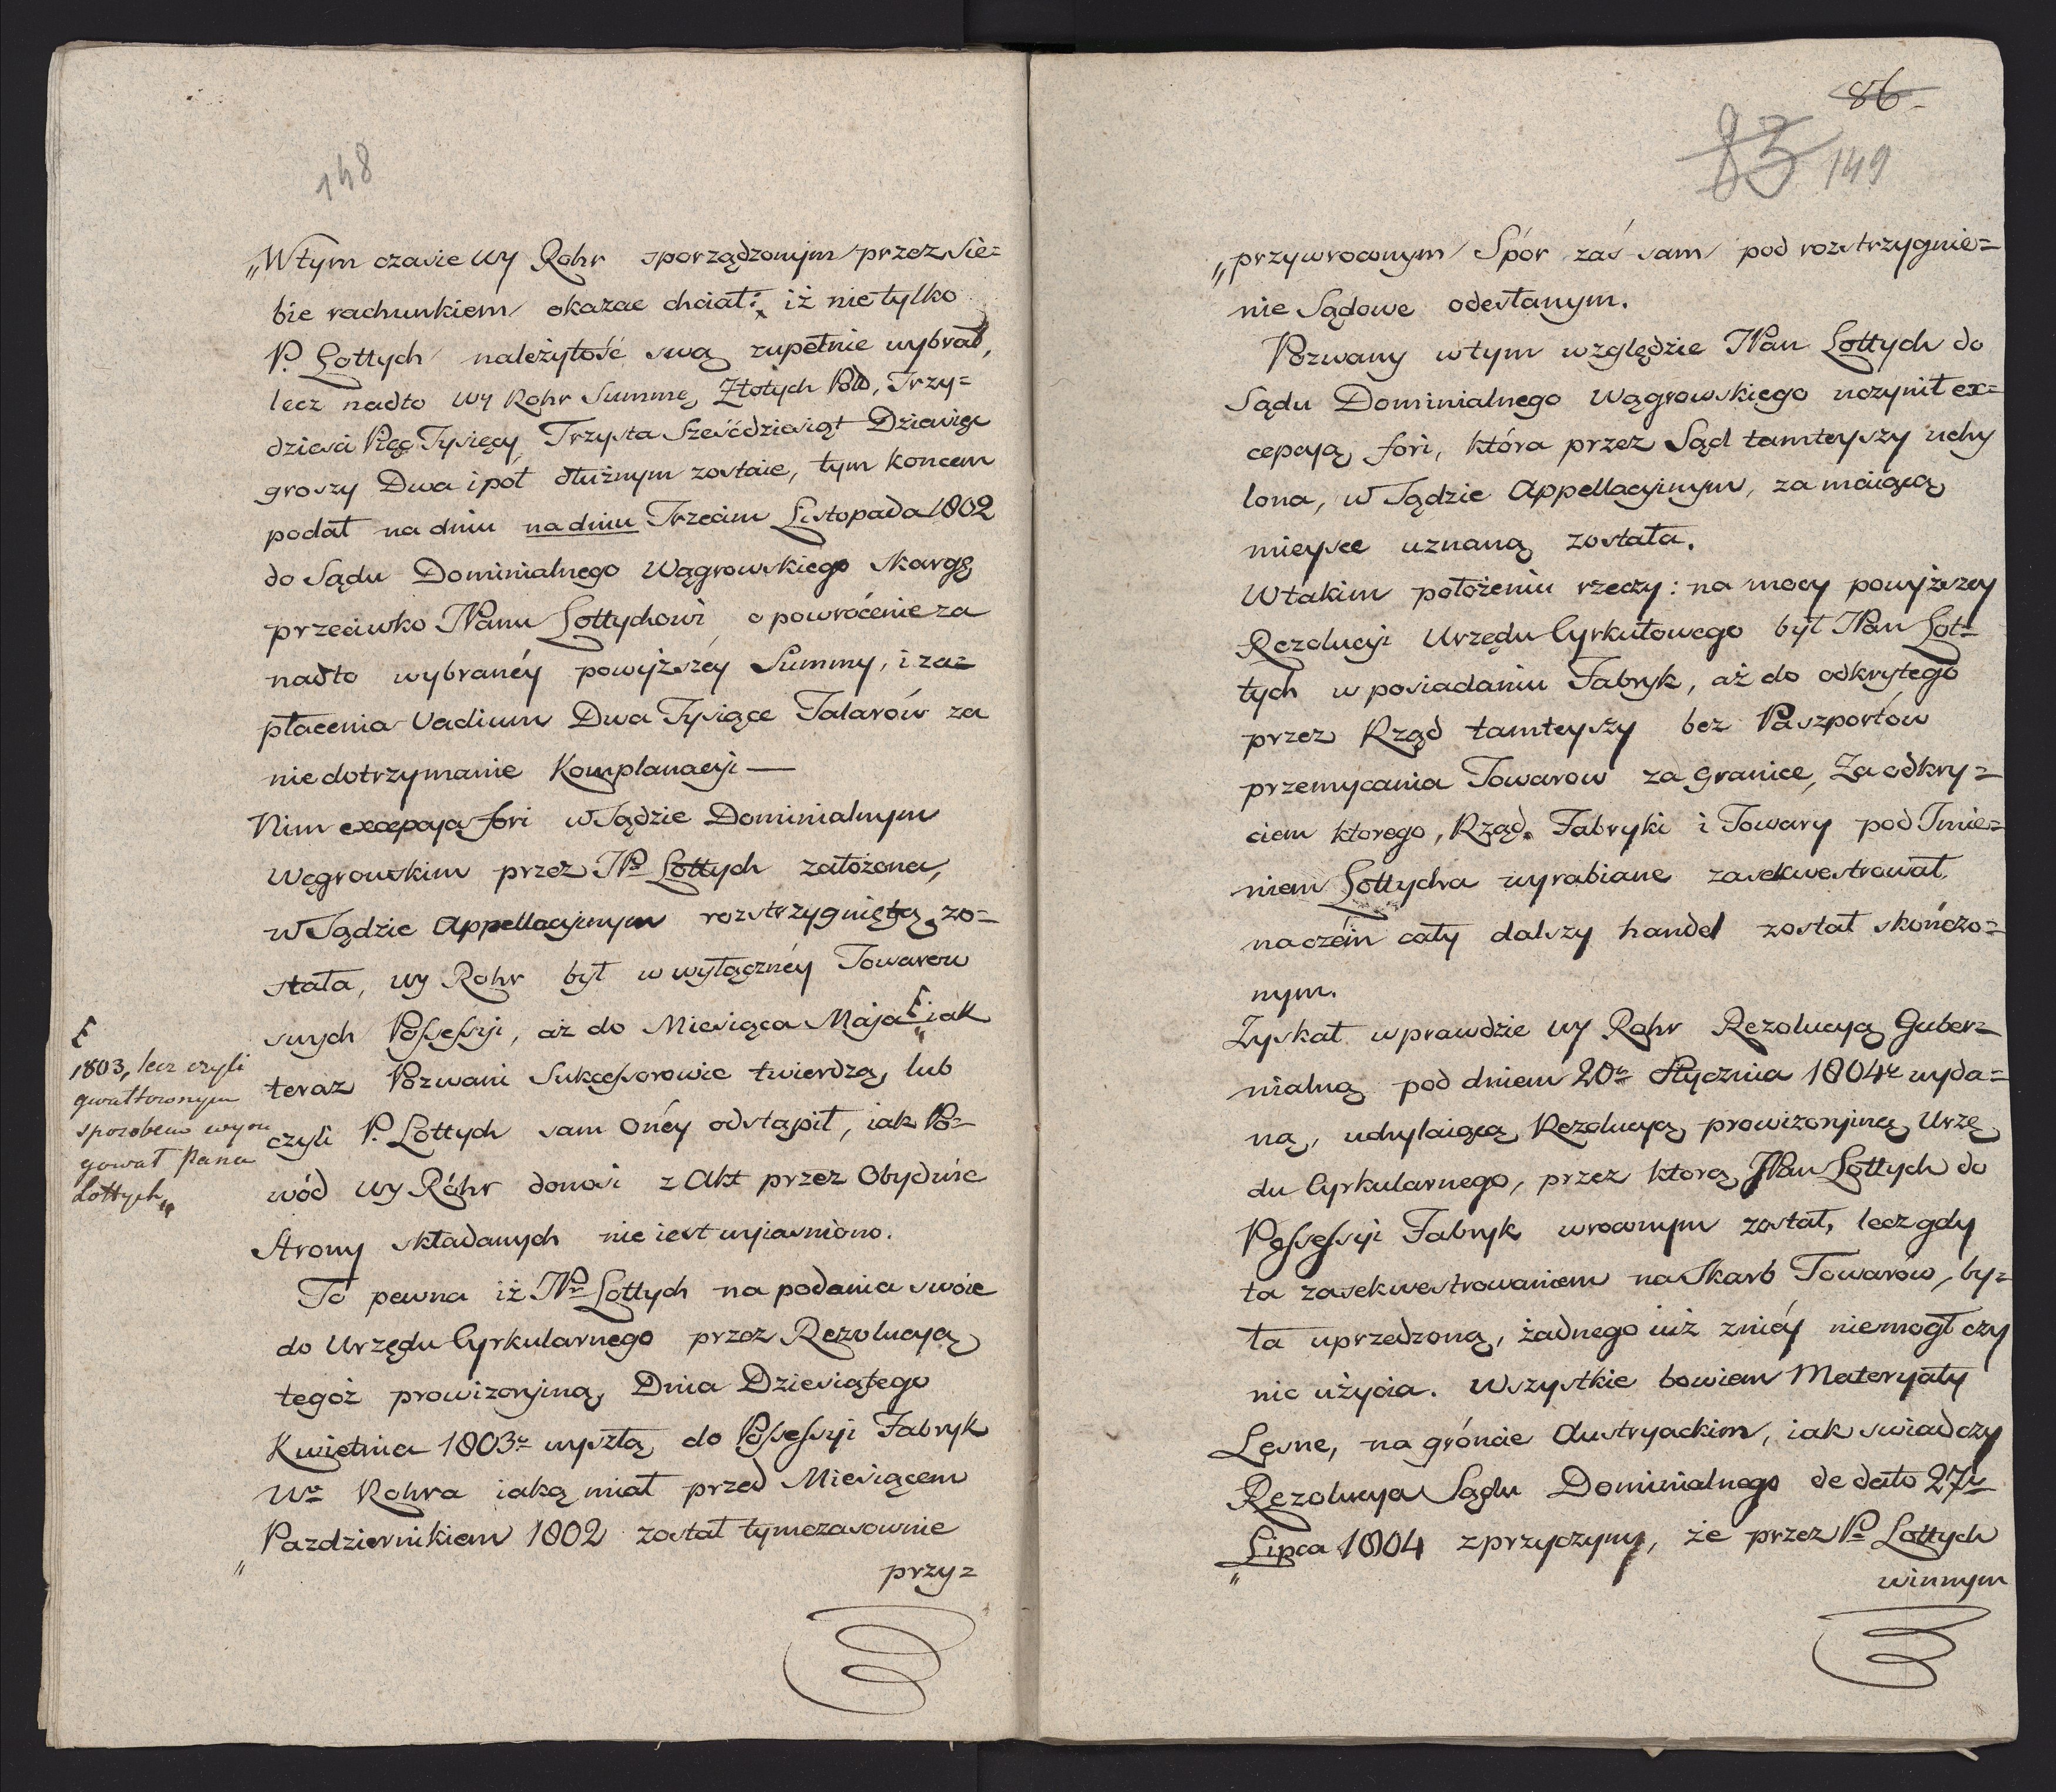 148
„W tym czasie Wy Rohr sporządzonym przez sie=
bie rachunkiem okazac chciał: iż nie tylko
P. Lottych należytość swą zupełnie wybrał,
lecz nadto Wy Rohr Summę Złotych Pols, Trzy=
dzieści Pięc Tysięcy Trzysta Sześćdziesiąt Dziewięc
groszy Dwa i pół dłużnym zostaie, tym koncem
podał na dniu na dniu Trzecim Listopada 1802
do Sądu Dominialnego Wągrowskiego skargę
przeciwko JPanu Lottychowi o powrócenie za
nadto wybranéy powyższéy Summy, i za=
płacenia Vadium Dwa Tysiące Talarów za
niedotrzymanie Komplanacyi —
Nim excepcya fori w Sądzie Dominialnym
Węgrowskim przez JPa Lottych założona,
w Sądzie Appellacyinym rozstrzygniętą zo=
stała, Wy Rohr był w wyłącznéy Towarow
swych Possessyi, aż do Miesiąca Maja iak
teraz Pozwani Sukcessorowie twierdzą, lub
czyli P. Lottych sam onéy odstąpił, iak Po=
wód Wy Róhr donosi z Akt przez Obydwie
Strony składanych nie iest wyiasniono.
To pewna iż JPn Lottych na podania swóie
do Urzędu Cyrkularnego przez Rezolucyą
tegóż prowizoryiną, Dnia Dziesiątego
Kwietnia 1803r wyszłą do Possessyi Fabryk
Wo Rohra iaką miał przed Miesiącem
Pazdziernikiem 1802 został tymczasownie
„ przy=
1803, lecz czyli
gwałtownym
sposobem wyru
gował Pana
Lottych„
86
83 149
„przywroconym Spór zaś sam pod rozstrzygnie=
nie Sądowe odesłanym.
Pozwany w tym względzie JPan Lottych do
Sądu Dominialnego Wągrowskiego uczynił ex=
cepcyą fori, która przez Sąd tamteyszy uchy
lona, w Sądzie Appellacyinym, za maiącą
mieysce uznaną została.
W takim położeniu rzeczy: na mocy powyższey
Rezolucyi Urzędu Cyrkułowego był JPan Lot=
tych w posiadaniu Fabryk, aż do odkrytego
przez Rząd tamteyszy bez Paszportów
przemycania Towarow za granice, Za odkry=
ciem ktorego, Rząd Fabryki i Towary pod Imie=
niem Lottycha wyrabiane zasekwestrował,
na czém cały dalszy handel został skończo=
nym.
Zyskał wprawdzie Wy Rohr Rezolucyą Guber=
nialną pod dniem 20o Stycznia 1804r wyda=
ną, uchylaiącą Rezolucyą prowizoryiną Urzę
du Cyrkularnego, przez ktorą JPan Lottych do
Possessyi Fabryk wrocnym został, lecz gdy
ta zasekwestrowaniem na Skarb Towarów, by=
ła uprzedzoną, żadnego iuż zniéy niemogł czy
nic użycia. Wszystkie bowiem Materyały
Lęsne, na gróncie Austryackim, iak swiadczy
Rezolucya Sądu Dominialnego de dato 27o
Lipca 1804 z przyczyny, że przez Pa Lottych
„ winnym